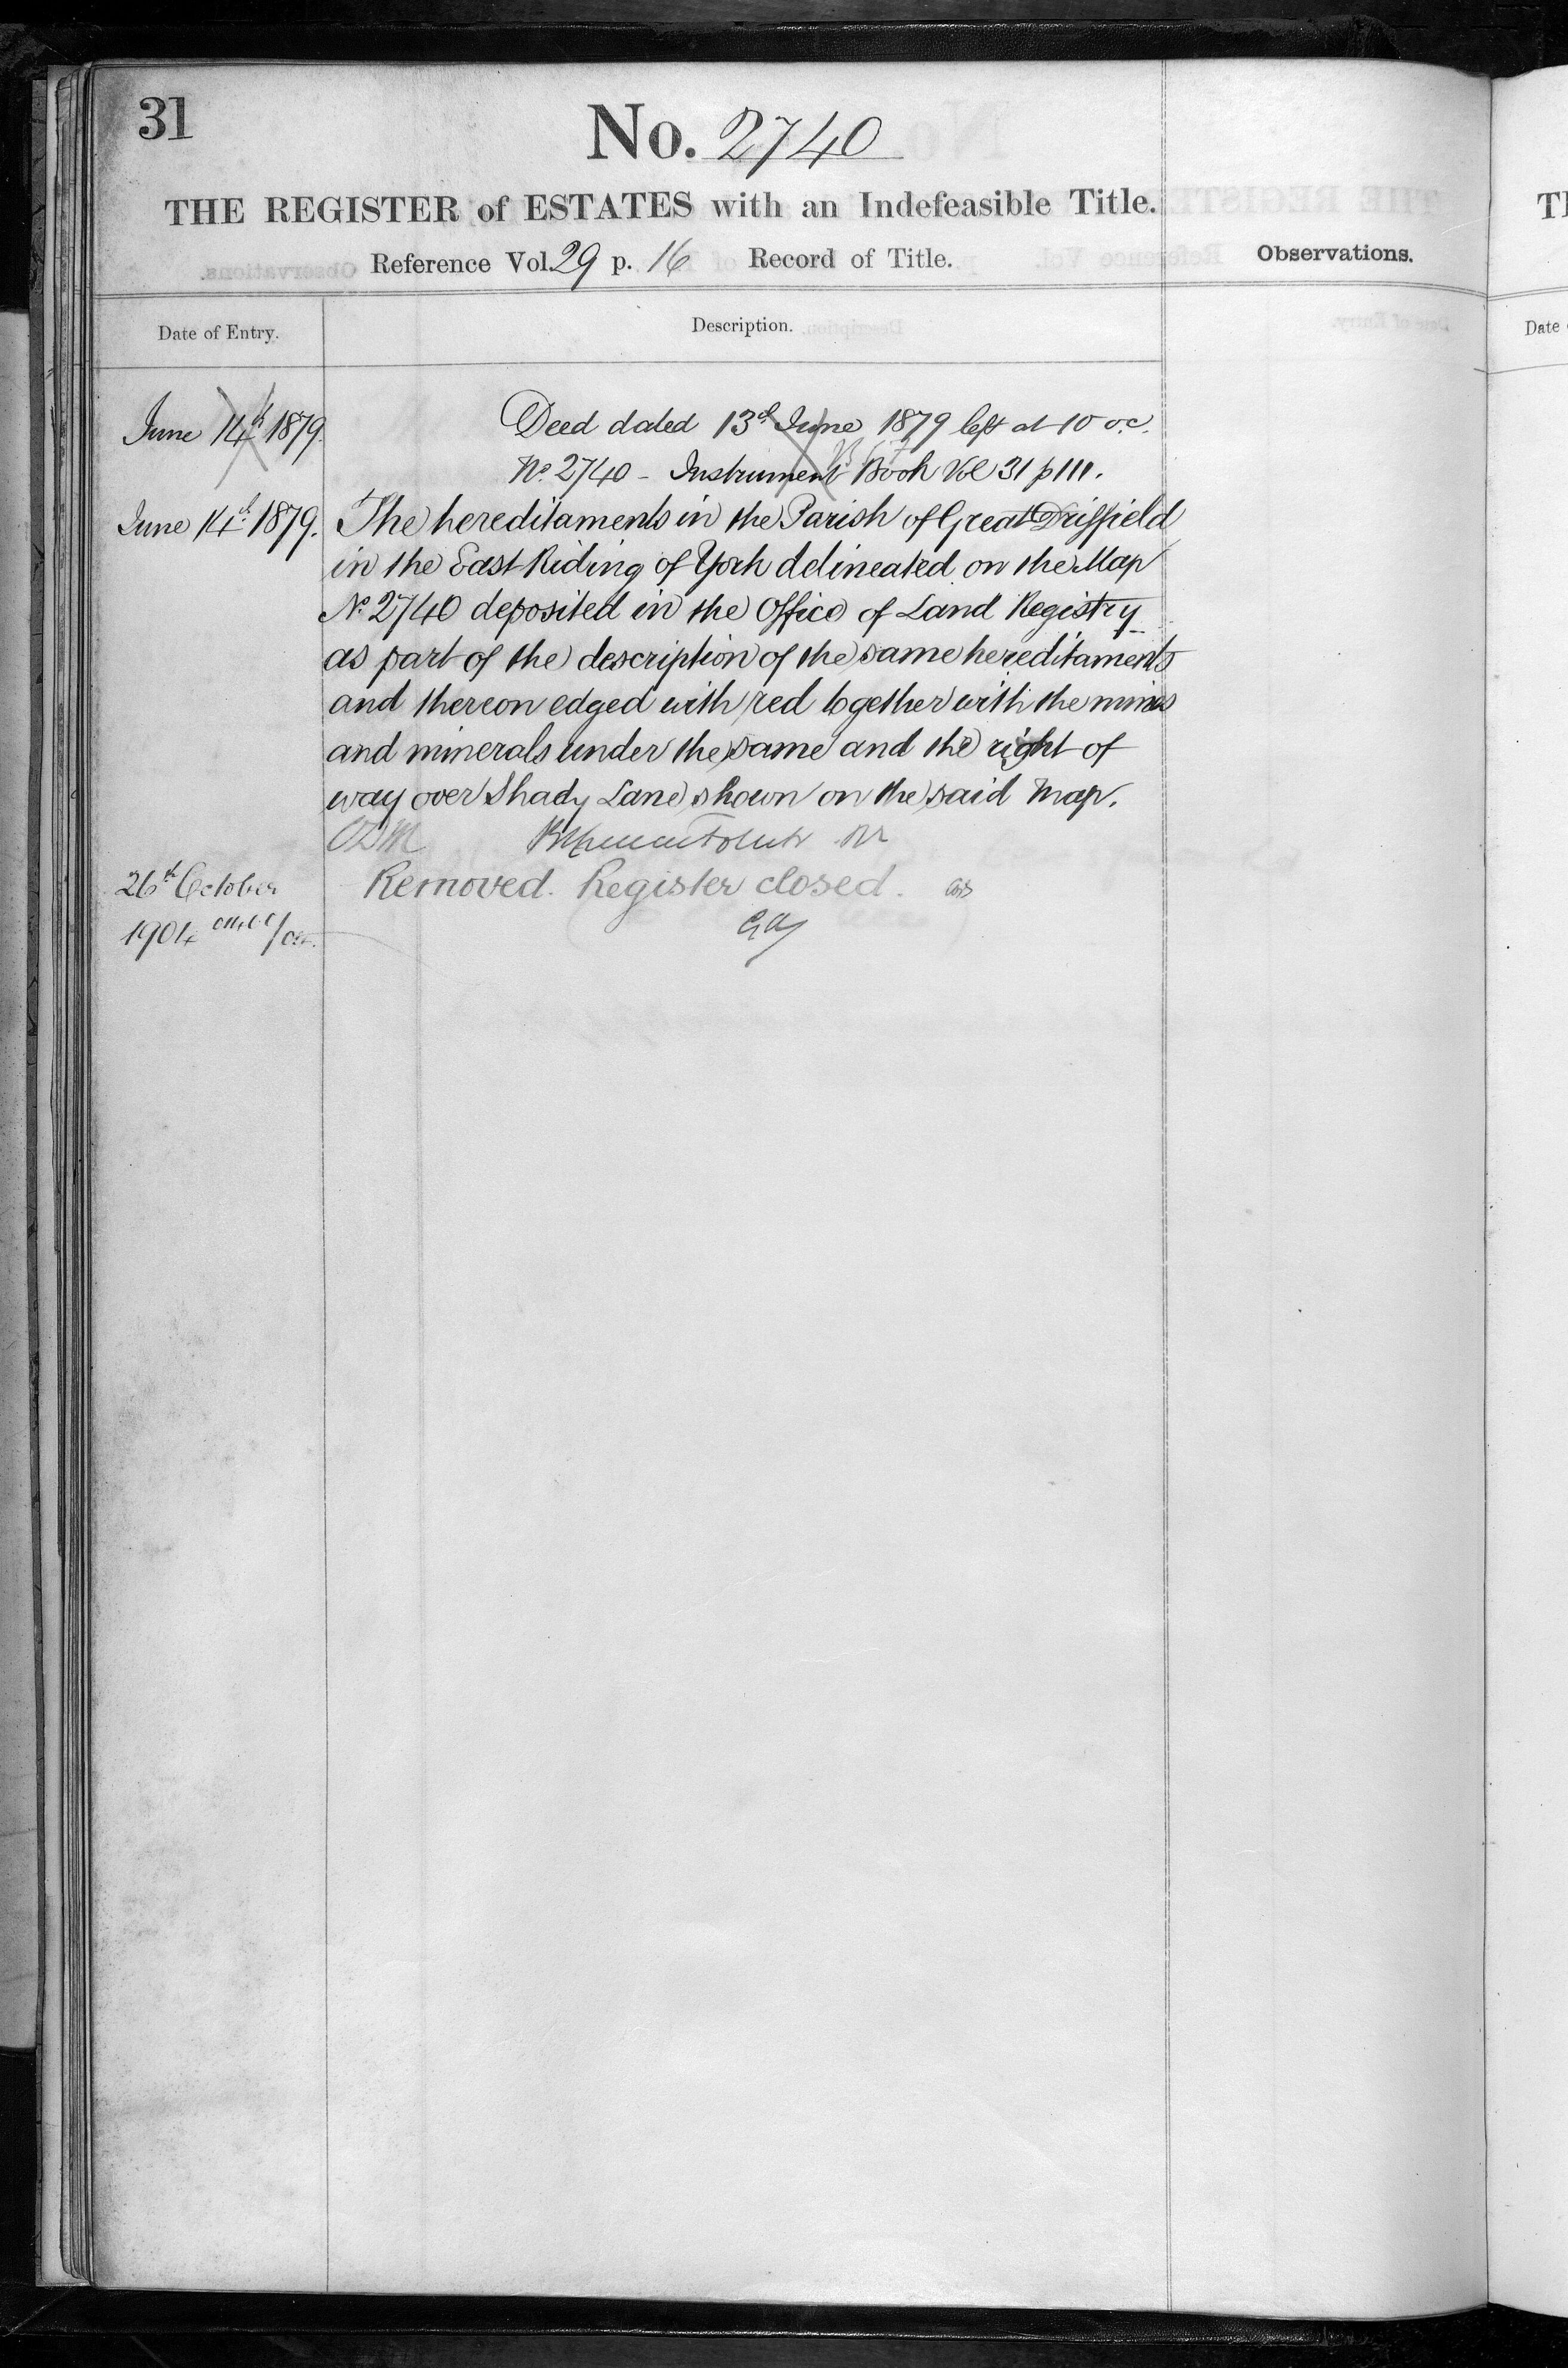 31
No. 2740
THE REGISTER of ESTATES with an Indefeasible Title.
Reference Vol. 29 p. 16 Record of Title.
Observations.
Date of Entry.
Description.
June 14th 1879.
Deed dated 13th June 1879 left at 10 o.c.
No. 2740 - Instrument Book Vol 31 p 111.
June 14th 1879.
The hereditaments in the Parish of Great Driffield
in the East Riding of York delineated on the Map
No. 2740 deposited in the Office of Land Registry
as part of the description of the same hereditaments
and thereon edged with red together with the mines
and minerals under the same and the right of
way over Shady Lane shown on the said Map.
26th October
Removed. Register closed.
1904
Date